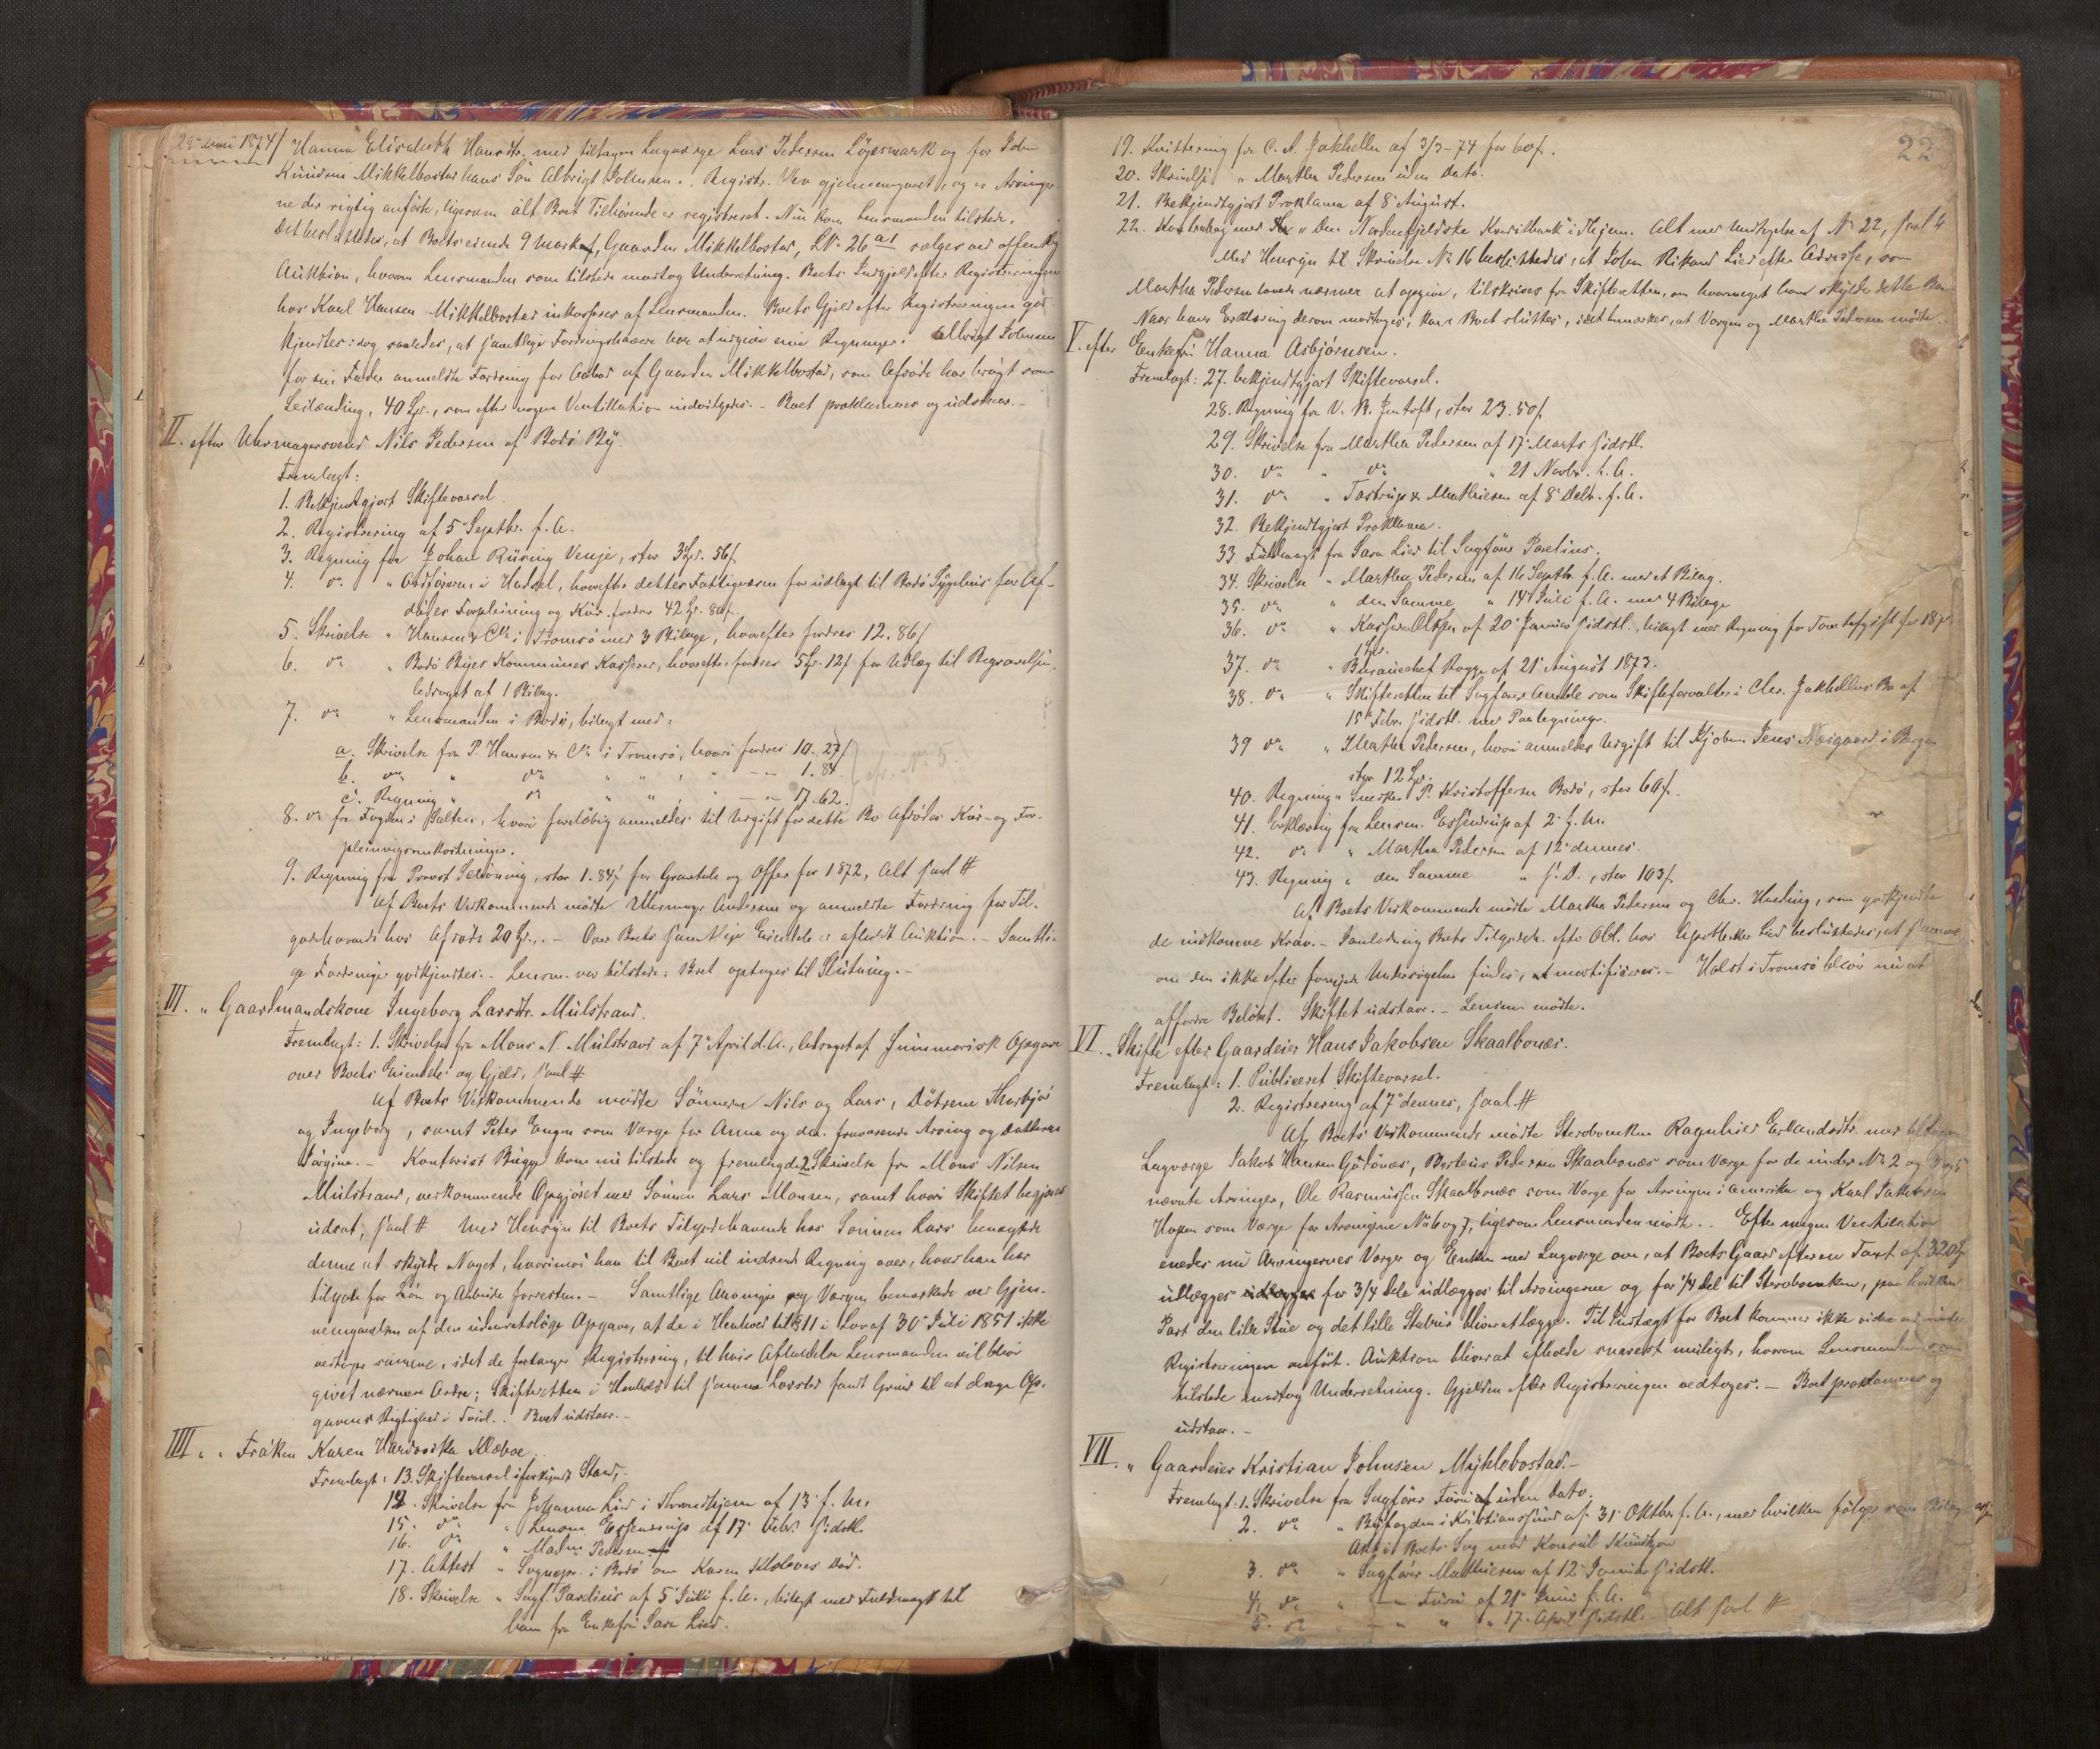 1874/ Hanna Elisabeth Hansdtr. med tiltagen Lagværge Lars Pedersen Løgermark og for John
Knudsens Mikkelbostad hans Søn Albrigt Johnsen. Registr. blev gjennemgaaet, og er Arvinger-
ne der rigtig anførte, ligesom alt Boet Tilhørende er registreret. Nu kom Lensmanden tilstede.
Det besluttedes, at Boets eiende 9 Mark af Gaarden Mikkelbostad, LNo 26 a1 sælges ved offentlig
Auktion, hvorom Lensmanden som tilstede modtog Underretning. Boets Indgjeld efter Registreringen
hos Karl Hansen Mikkelbostad inkasseres af Lensmanden. Boets Gjeld efter Registreringen god-
kjendtes idag saaledes, at samtlige Fordringshavere har at indgive sine Regninger. Albrigt Johnsen
for sin Fader anmeldte Fordring for Aabod af Gaarden Mikkelbostad, som Afdøde har brugt som
Leilænding, 40 Spd., som efter nogen Ventillation indvilgedes. - Boet proklameres og udstaar. -
II. efter Uhrmagersvend Nils Pedersen af Bodø By.
Fremlagt:
1. Bekjendtgjort Skiftevarsel
2. Registrering af 5 Septbr. f. A.
3. Regning fra Johan Rüning Venje, stor 3 Spd. 56 /.
4. do " Ordføreren i Hadsel, hvorefter dettes Fattigvæsen for udlagt til Bodø Sygehus for Af-
dødes Forpleining og Kur fordrer 42 Spd. 80 /.
5. Skrivelse " Hansen & Co i Tromsø med 3 Bilage, hvorefter fordres 12. 86 /
6. do " Bodø Byes Kommunes Kasserer, hvorefter fordres 5 Spd. 12 / for Udlæg til Begravelsen,
ledsaget af 1 Bilag.
7. do " Lensmanden i Bodø, bilagt med:
a. Skrivelse fra P. Hansen & Co i Tromsø, hvori fordres 10. 27 /
b. do " do " " " - - 1. 84 cfr. No 5.
c. Regning " do " " " - - 17. 62.
8. do fra Fogden i Salten, hvori foreløbig anmeldes til Udgift for dette Bo Afdødes Kur- og For-
pleiningsomkostninger.
9. Regning fra Provst , stor 1. 84 / for Gravtale og Offer for 1872, Alt saal #
Af Boets Vedkommende mødte Uhrmager Andersen og anmeldte Fordring for Til-
godehavende hos Afdøde 20 Spd. - Over Boets samtlige Eiendele er afholdt Auktion. - Samtli-
ge Fordringer godkjendtes. - Lensm. var tilstede. Boet optages til Slutning. -
III. " Gaardmandskone Ingeborg Larsdtr. Mulstrand.
Fremlagt: 1. Skrivelse fra Mons N. Mulstrand af 7 April d. A., ledsaget af Summarisk Opgave
over Boets Eiendele og Gjeld, saal #
Af Boets Vedkommende mødte Sønnerne Nils og Lars, Døtrene Thorbjør
og Ingeborg, samt Peter Engen som Værge for Anna og den fraværende Arving og Datteren
Jørgine. - Kontorist Bugge kom nu tilstede og fremlagde 2 Skrivelse fra Mons Nilsen
Mulstrand, vedkommende Opgjøret med Sønnen Lars Monsen, samt hvori Skiftet begjæres
udsat, saal # Med Hensyn til Boets Tilgodehavende hos Sønnen Lars benægtede
denne at skylde Noget, hvorimod han til Boet vil indsende Regning over, hvad han har
tilgode for Løn og Arbeide forresten. - Samtlige Arvinger og Værger bemærkede ved Gjen-
nemgaaelsen af den udenretslige Opgave, at de i Henhold til § 11 i Lov af 30 Juli 1851 ikke
vedtager samme, idet de forlanger Registrering, til hvis Afholdelse Lensmanden vil blive
givet nærmere Ordre; Skifteretten i Henhold til samme Lovsted fandt Grund til at drage Op-
gavens Rigtighed i Tvivl. Boet udstaar. -
IIII. " " Frøken Karen Hardvika Klæboe.
Fremlagt: 13. Skiftevarsel i forkyndt Stand.
14. Skrivelse fra Johanna Lind i Throndhjem af 13 f. M.
15. do " Lensm. Essendrup af 17 Febr. sidstl.
16. do " Madm Pedersen
17. Attest " Sognepr. i Bodø om Karen Klæboes Død.
18. Skrivelse " Sagf. Paselius af 5 Juli f. A., bilagt med Fuldmagt til
ham fra Enkefru Sara Lied.
22
19. Kvittering fra C. A. Jakhelln af 3/3-74 for 60 /.
20. Skrivelse " Martha Pedersen uden Dato.
21. Bekjendtgjort Proklama af 8 August.
22. Kontrabog med "Den Nordenfjeldske Kreditbank" i Thjem. Alt med Undtagelse af No 22, saal #
Med Hensyn til Skrivelse No 16 besluttedes, at Johan Rikard Lied efter Adresse, som
Martha Pedersen lovede nærmere at opgive, tilskrives fra Skifteretten, om hvormeget han skylder dette Bo
Naar hans Erklæring derom modtages, kan Boet sluttes, idet bemærkes, at Værgen og Martha Pedersen mødte.
V. efter Enkefru Hanna Asbjørnsen.
Fremlagt: 27. bekjendtgjort Skiftevarsel.
28. Regning fra V. B. Jentoft, stor 23. 50 /.
29. Skrivelse fra Martha Pedersen af 17 Marts sidstl.
30. do " do " 21 Novbr. f. A.
31. do " Tostrup & Mathiesen af 8 Debr. f. A.
32. Bekjendtgjort Proklama.
33. Fuldmagt fra Sara Lied til Sagfører Paselius.
34. Skrivelse " Martha Pedersen af 16 Septbr. f. A. med et Bilag.
35. do " den Samme " 14 Juli f. A. med 4 Bilage
36. do " Kasserer Olsen af 20 Januar sidstl., bilagt med Regning for Tomtefgift for 187
1 Spd.
37. do " Bureauchef Rogge af 21 August 1873.
38. do " Skifteretten til Sagfører Amble som Skifteforvalter i Chr. Jakhellns Bo af
15 Febr. sidstl. med Paategninger.
39 do " Martha Pedersen, hvori anmeldes Udgift til Kjøbm. Jens Næsgaard i Bergen
stor 12 Spd.
40. Regning " Snedker P. Kristoffersen Bodø, stor 60 /.
41. Erklæring fra Lensm. Essendrup af 2 f. M.
42. do " Martha Pedersen af 12 dennes.
43. Regning " den Samme " s. D., stor 103 /.
Af Boets Vedkommende mødte Martha Pedersen og Chr. Hveding, som godkjendte
de indkomne Krav. - Ianledning Boets Tilgodeh. efter Obl. hos Apotheker Lied besluttedes, at samme
om den ikke efter foregaaende Undersøgelse findes, at mortificeres. - Holst i Tromsø bliver nu at
affordre Beløbet. Skiftet udstaar. - Lensm. mødte.
VI. " Skifte efter Gaardeier Hans Jakobsen Skaalbones.
Fremlagt: 1. Publiceret Skiftevarsel.
2. Registrering af 7 dennes, saal. #
Af Boets Vedkommende mødte Sterboenken Ragnhild Erlandsdtr. med tiltagen
Lagværge Jakob Hansen Godønes, Peder Pedersen Skaalbones som Værge for de under No 2 og
nævnte Arvinger, Ole Rasmussen Skaalbones som Værge for Arvingen i Amerika og Karl Jakobsen
Hopen som Værge for Arvingerne No 6 og 7, ligesom Lensmanden mødte. Efter nogen Ventilation
enedes nu Arvingernes Værger og Enken med Lagværge om, at Boets Gaard efter en Taxt af 320 Spd
udlægges for 3/4 Dele udlægges til Arvingerne og for 1/4 Del til Sterboenken, paa hvilken
Part den lille Stue og det lille Stabur bliver at lægge. Til Indtægt for Boet kommer ikke videre end under
Registreringen anført. Auktion bliver at afholde snarest muligt, hvorom Lensmanden som
tilstede modtog Underretning. Gjelden efter Registreringen vedtoges. - Boet proklameres og
udstaar. -
VII. " Gaardeier Kristian Johnsen Myklebostad. -
Fremlagt: 1. Skrivelse fra Sagfører Furu uden Dato.
2. do " Byfogden i Kristianssund af 31 Oktbr. f. A., med hvilken følger som Bilag
Akt i Boets Sag mod Konsul Knudtzon
3. do " Sagfører Mathiesen af 12 Januar sidstl.
4. do " - Furu af 21 Juni f. A.
5. do " - " " 17. April sidstl. - Alt saal #